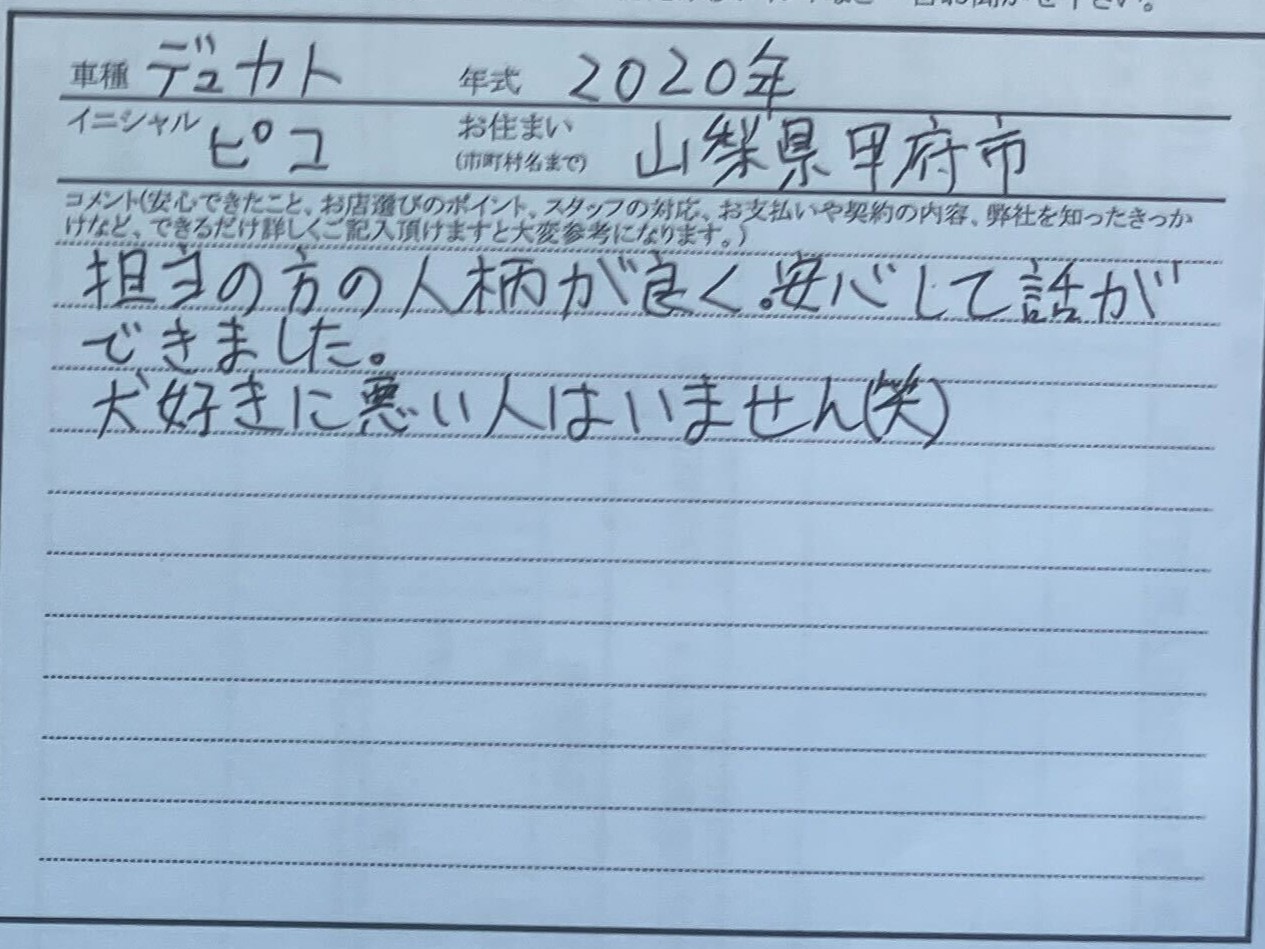 車種 デュカト 年式 2020年
イニシャル ピコ お住まい 山梨県甲府市
(市町村名まで)
コメント(安心できたこと、お店選びのポイント、スタッフの対応、お支払いや契約の内容、弊社を知ったきっか
けなど、できるだけ詳しくご記入頂けますと大変参考になります。)
担当の方の人柄が良く。安心して話が
できました。
犬好きに悪い人はいません(笑)